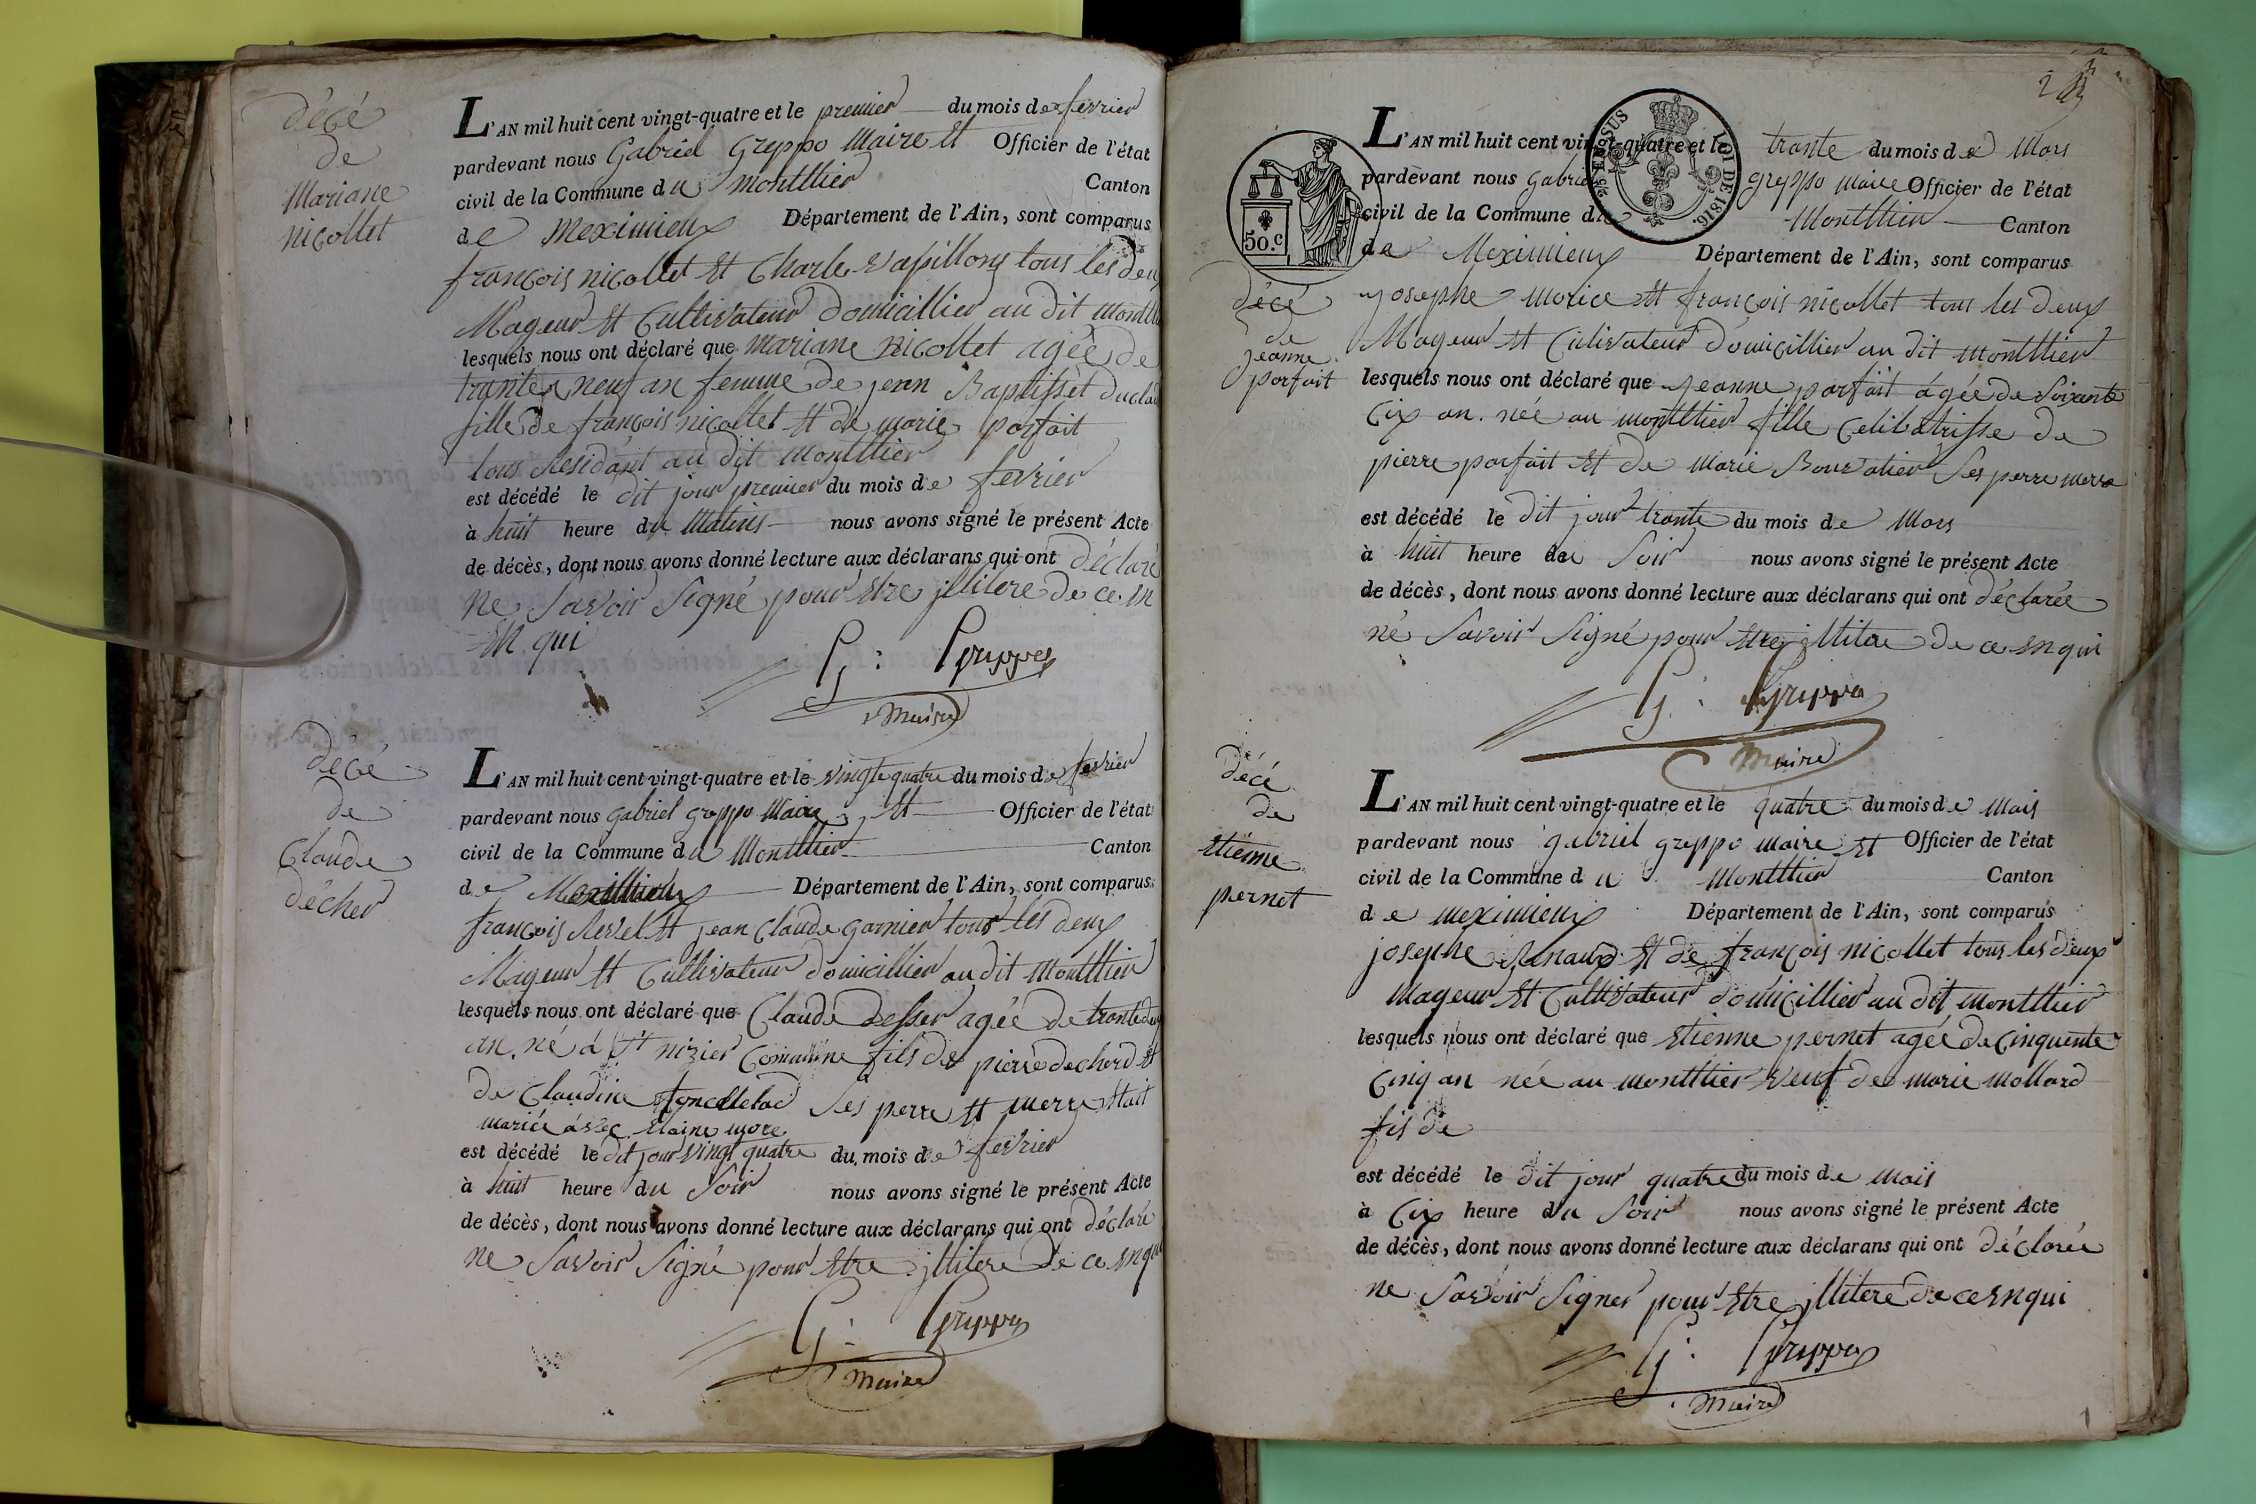 décé
de
Mariane
nicollet
L'AN mil huit cent vingt-quatre et le premier du mois de fevrier
pardevant nous Gabriel Greppo Maire et Officier de l'état
civil de la Commune du Montllier Canton
de Meximieux Département de l'Ain, sont comparus
françois nicollet et Charle vapillons tous les deux
Mageur et Cultivateur domicillier au dit Montllier
lesquels nous ont déclaré que Mariane Nicollet agée de
trante neuf an femme de jean Baptisset
fille de françois nicollet et de marie parfait
tous Residant au dit Montllier
est décédé le dit jour premier du mois de fevrier
à huit heure du Matins nous avons signé le présent Acte
de décès, dont nous avons donné lecture aux déclarans qui ont déclaré
ne Savoir Signé pour Etre jllitere de ce. en
en. qui
G: Greppo
Maire
décé
de
Claude
décher
L'AN mil huit cent vingt-quatre et le vingt quatre du mois de fevrier
pardevant nous gabriel greppo Maire et Officier de l'état
civil de la Commune du Montllier Canton
de Département de l'Ain, sont comparus
françois Revel et jean Claude garnier tous les deux
Mageur et Cultivateur domicillier au dit Montllier
lesquels nous ont déclaré que Claude desser agée de trante deux
an. né á St nizier Commune fils de pierre decherd et
de Claudine Ses perre et merre Etait
mariée ávec more
est décédé le dit jour vingt quatre du mois de fevrier
à huit heure du Soir nous avons signé le présent Acte
de décès, dont nous avons donné lecture aux déclarans qui ont déclaré
ne Savoir Signé pour Etre jllitere de ce en qui
G: Greppo
Maire
2
50.c
EN SUS
LOI DE 1816.
décé
de
jeanne
parfait
L'AN mil huit cent vingt-quatre et le trante du mois de Mars
pardevant nous gabriel greppo maire Officier de l'état
civil de la Commune du Montllier Canton
de Meximieux Département de l'Ain, sont comparus
josephe morice et françois nicollet tous les deux
Mageur et Cultivateur domicillier au dit Montllier
lesquels nous ont déclaré que jeanne parfait ágée de Soixante
Cix an. née au montllier fille Celibatrisse de
pierre parfait et de Marie Bouvatier Ses perre merre
est décédé le dit jour trante du mois de Mars
à huit heure du Soir nous avons signé le présent Acte
de décès, dont nous avons donné lecture aux déclarans qui ont déclarée
né Savoir Signé pour Etre jllitere de ce en qui
G: Greppo
Maire
décé
de
Etienne
pernet
L'AN mil huit cent vingt-quatre et le quatre du mois de Mais
pardevant nous gabriel greppo maire et Officier de l'état
civil de la Commune du Montllier Canton
de meximieux Département de l'Ain, sont comparus
josephe Renaud et de françois nicollet tous les deux
Mageur et Cultivateur domicillier au dit montllier
lesquels nous ont déclaré que Etienne pernet agée de Cinquente
Cinq an née au montllier veuf de marie mollard
fis de
est décédé le dit jour quatre du mois de Mais
à Cix heure du Soir nous avons signé le présent Acte
de décès, dont nous avons donné lecture aux déclarans qui ont déclarée
ne Savoir Signer pour Etre jllitere de ce en qui
G: Greppo
Maire